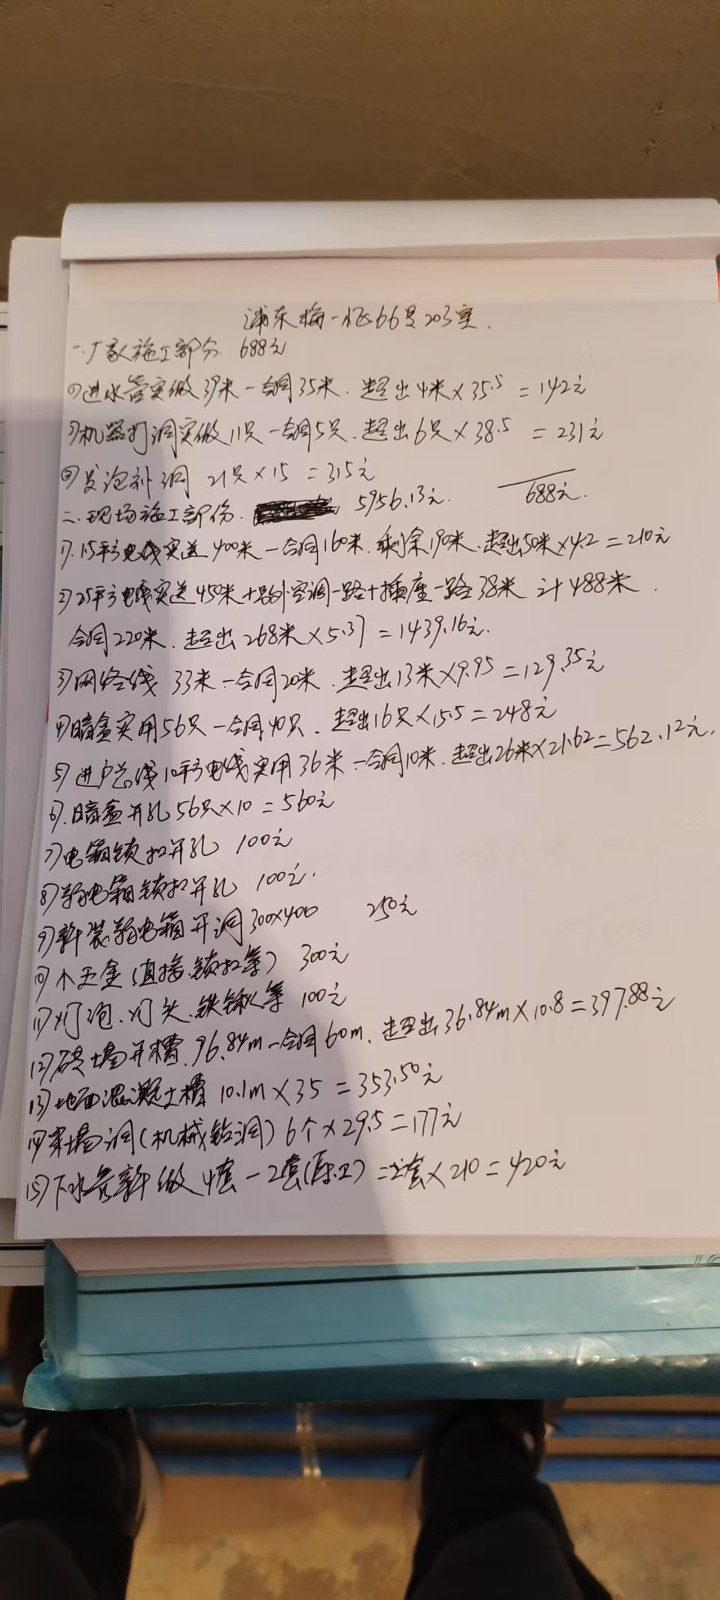 浦东梅一街66号203室.
一.厂家施工部分. 688元
①进水管实做39米-合同35米.超出4米×35.5=142元
②机器打洞实做11只-合同5只.超出6只×38.5=231元
③发泡补洞 21只×15=315元
688元.
二.现场施工部份. 5956.13元.
1).15平方电线实送400米-合同160米.剩余190米.超出50米×4.2=210元
2)25平方电线实送450米+ 空调一路+插座一路38米 计488米.
合同220米.超出268米×5.37=1439.16元.
3)网络线 33米-合同20米.超出13米×9.95=129.35元
4)暗盒实用56只-合同40只.超出16只×15.5=248元
5)进户总线10平方电线实用36米-合同10米.超出26米×21.62=562.12元.
6).暗盒开孔56只×10=560元
7)电箱锁扣开孔 100元
8)弱电箱锁扣开孔 100元.
9)新装弱电箱开洞300×400 250元
10)小五金(直接.锁扣等) 300元
11)灯泡.灯头.铁锹等 100元
12)砖墙开槽.96.84m-合同60m.超出36.84m×10.8=397.88元
13)地面混凝土槽 10.1m×35=353.50元
14)条墙洞(机械钻洞)6个×29.5=177元
15)下水管新做4套-2套(原工)=2套×210=420元